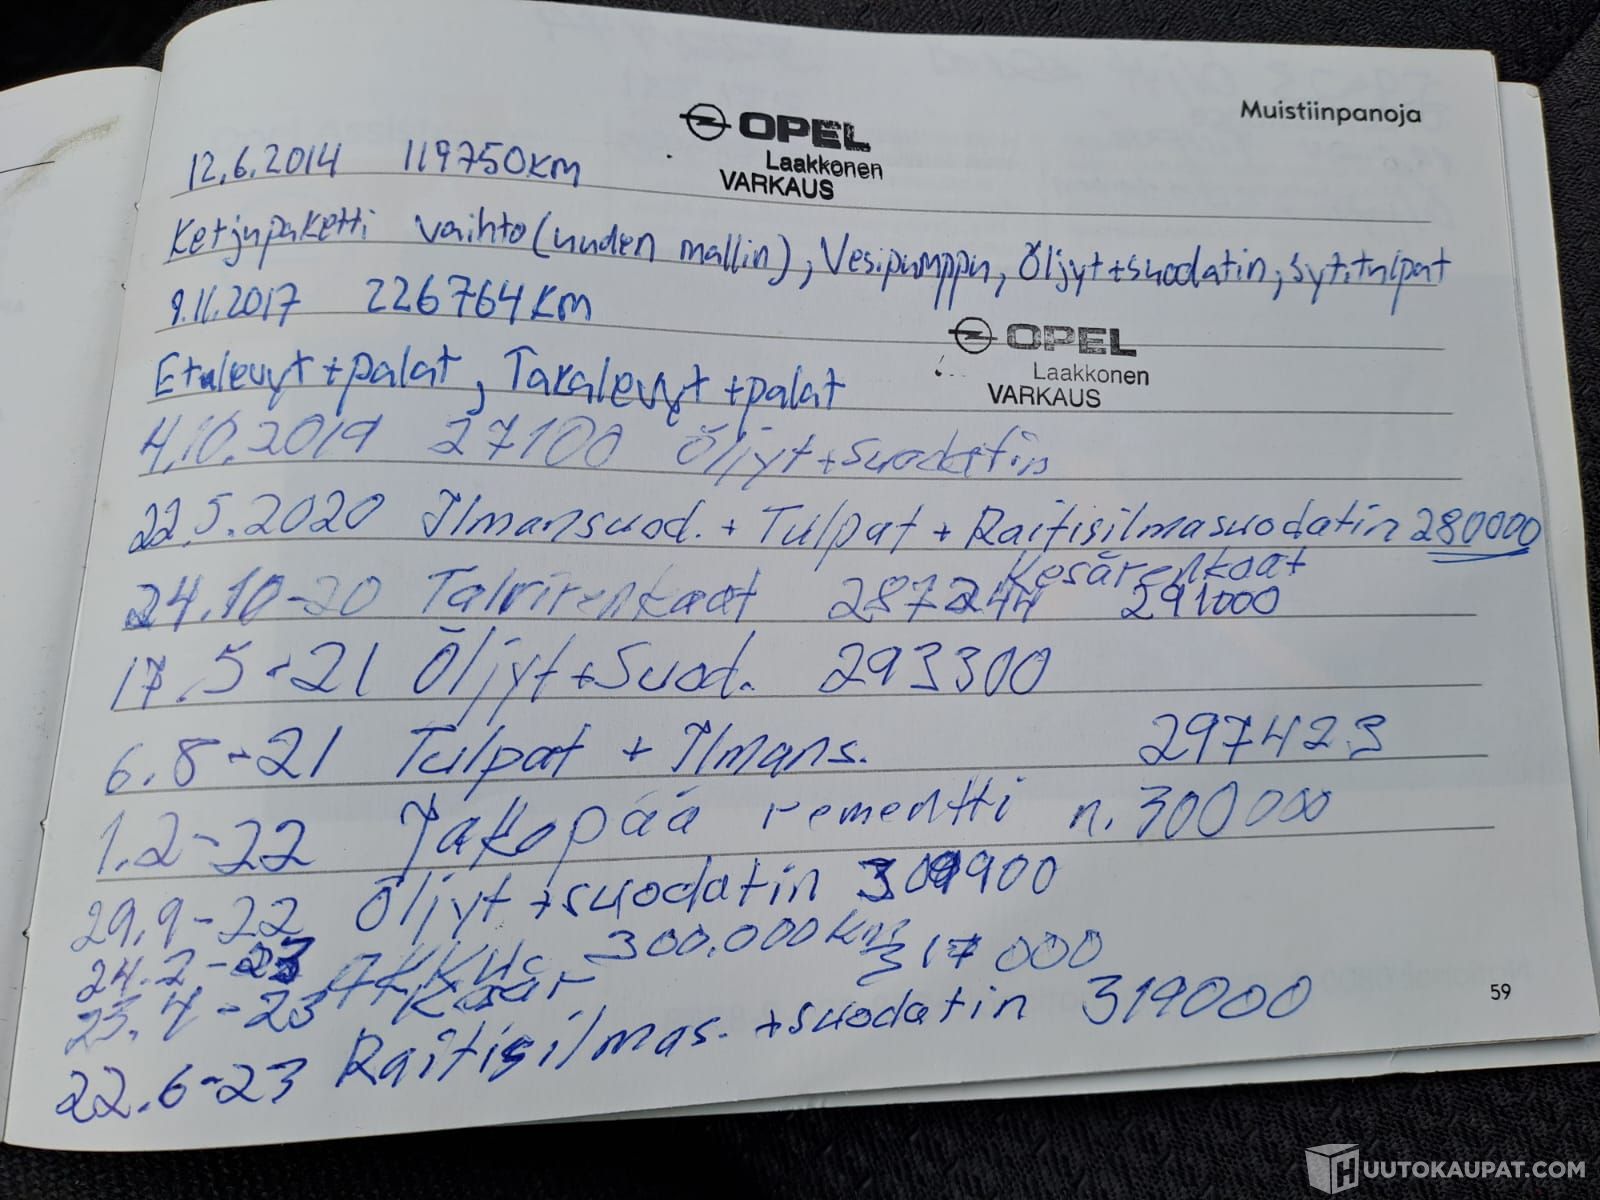 Muistiinpanoja
OPEL
Laakkonen
VARKAUS
12.6.2014 119750km
Ketjupaketti vaihto (uuden mallin), Vesipumppu, Öljyt+suodatin, Syt.tulpat
9.11.2017 226764km
OPEL
Laakkonen
VARKAUS
Etulevyt+palat, Takalevyt+palat
4.10.2019 27100 Öljyt+suodatin
22.5.2020 Ilmansuod. + Tulpat + Raitisilmasuodatin 280000
24.10-20 Talvirenkaat 287244 Kesärenkaat
291000
17.5-21 Öljyt+Suod. 293300
6.8-21 Tulpat + Ilmans. 297423
1.2-22 Jakopää rementti n.300000
29.9-22 Öljyt+suodatin 309900
24.2-23 300.000km
23.4-23 317000
22.6-23 Raitisilmas.+suodatin 319000
59
HUUTOKAUPAT.COM